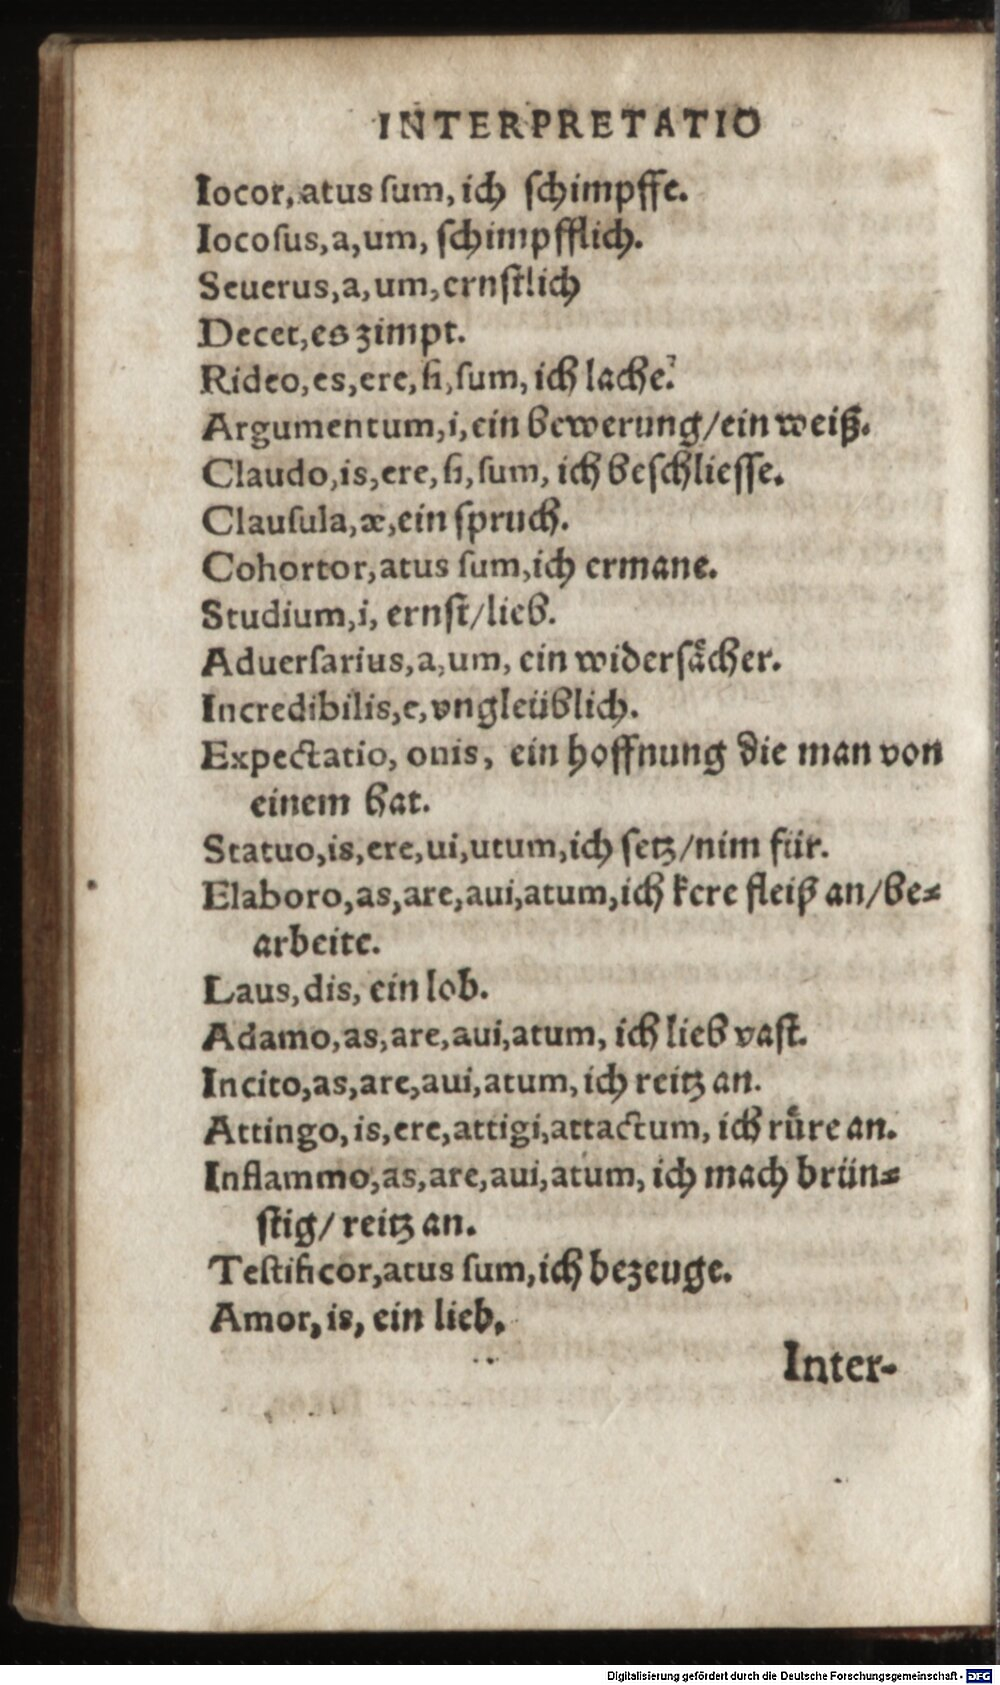 INTERPRETATIO
Iocor, atus ſum, ich ſchimpffe.
Iocoſus, a, um, ſchimpfflich.
Seuerus, a, um, ernſtlich
Decet, es zimpt.
Rideo, es, ere, ſi, ſum, ich lache.
Argumentum, i, ein bewerung/ein weiß.
Claudo, is, ere, ſi, ſum, ich beſchlieſſe.
Clauſula, æ, ein ſpruch.
Cohortor, atus ſum, ich ermane.
Studium, i, ernſt/lieb.
Aduerſarius, a, um, ein widerſaͤcher.
Incredibilis, e, vngleüblich.
Expectatio, onis, ein hoffnung die man von
einem hat.
Statuo, is, ere, ui, utum, ich ſetz/nim für.
Elaboro, as, are, aui, atum, ich kere fleiß an/be⸗
arbeite.
Laus, dis, ein lob.
Adamo, as, are, aui, atum, ich lieb vaſt.
Incito, as, are, aui, atum, ich reitz an.
Attingo, is, ere, attigi, attactum, ich ruͤre an.
Inflammo, as, are, aui, atum, ich mach brün⸗
ſtig/ reitz an.
Teſtificor, atus ſum, ich bezeuge.
Amor, is, ein lieb.
Inter-
Digitalisierung gefördert durch die Deutsche Forschungsgemeinschaft - DFG